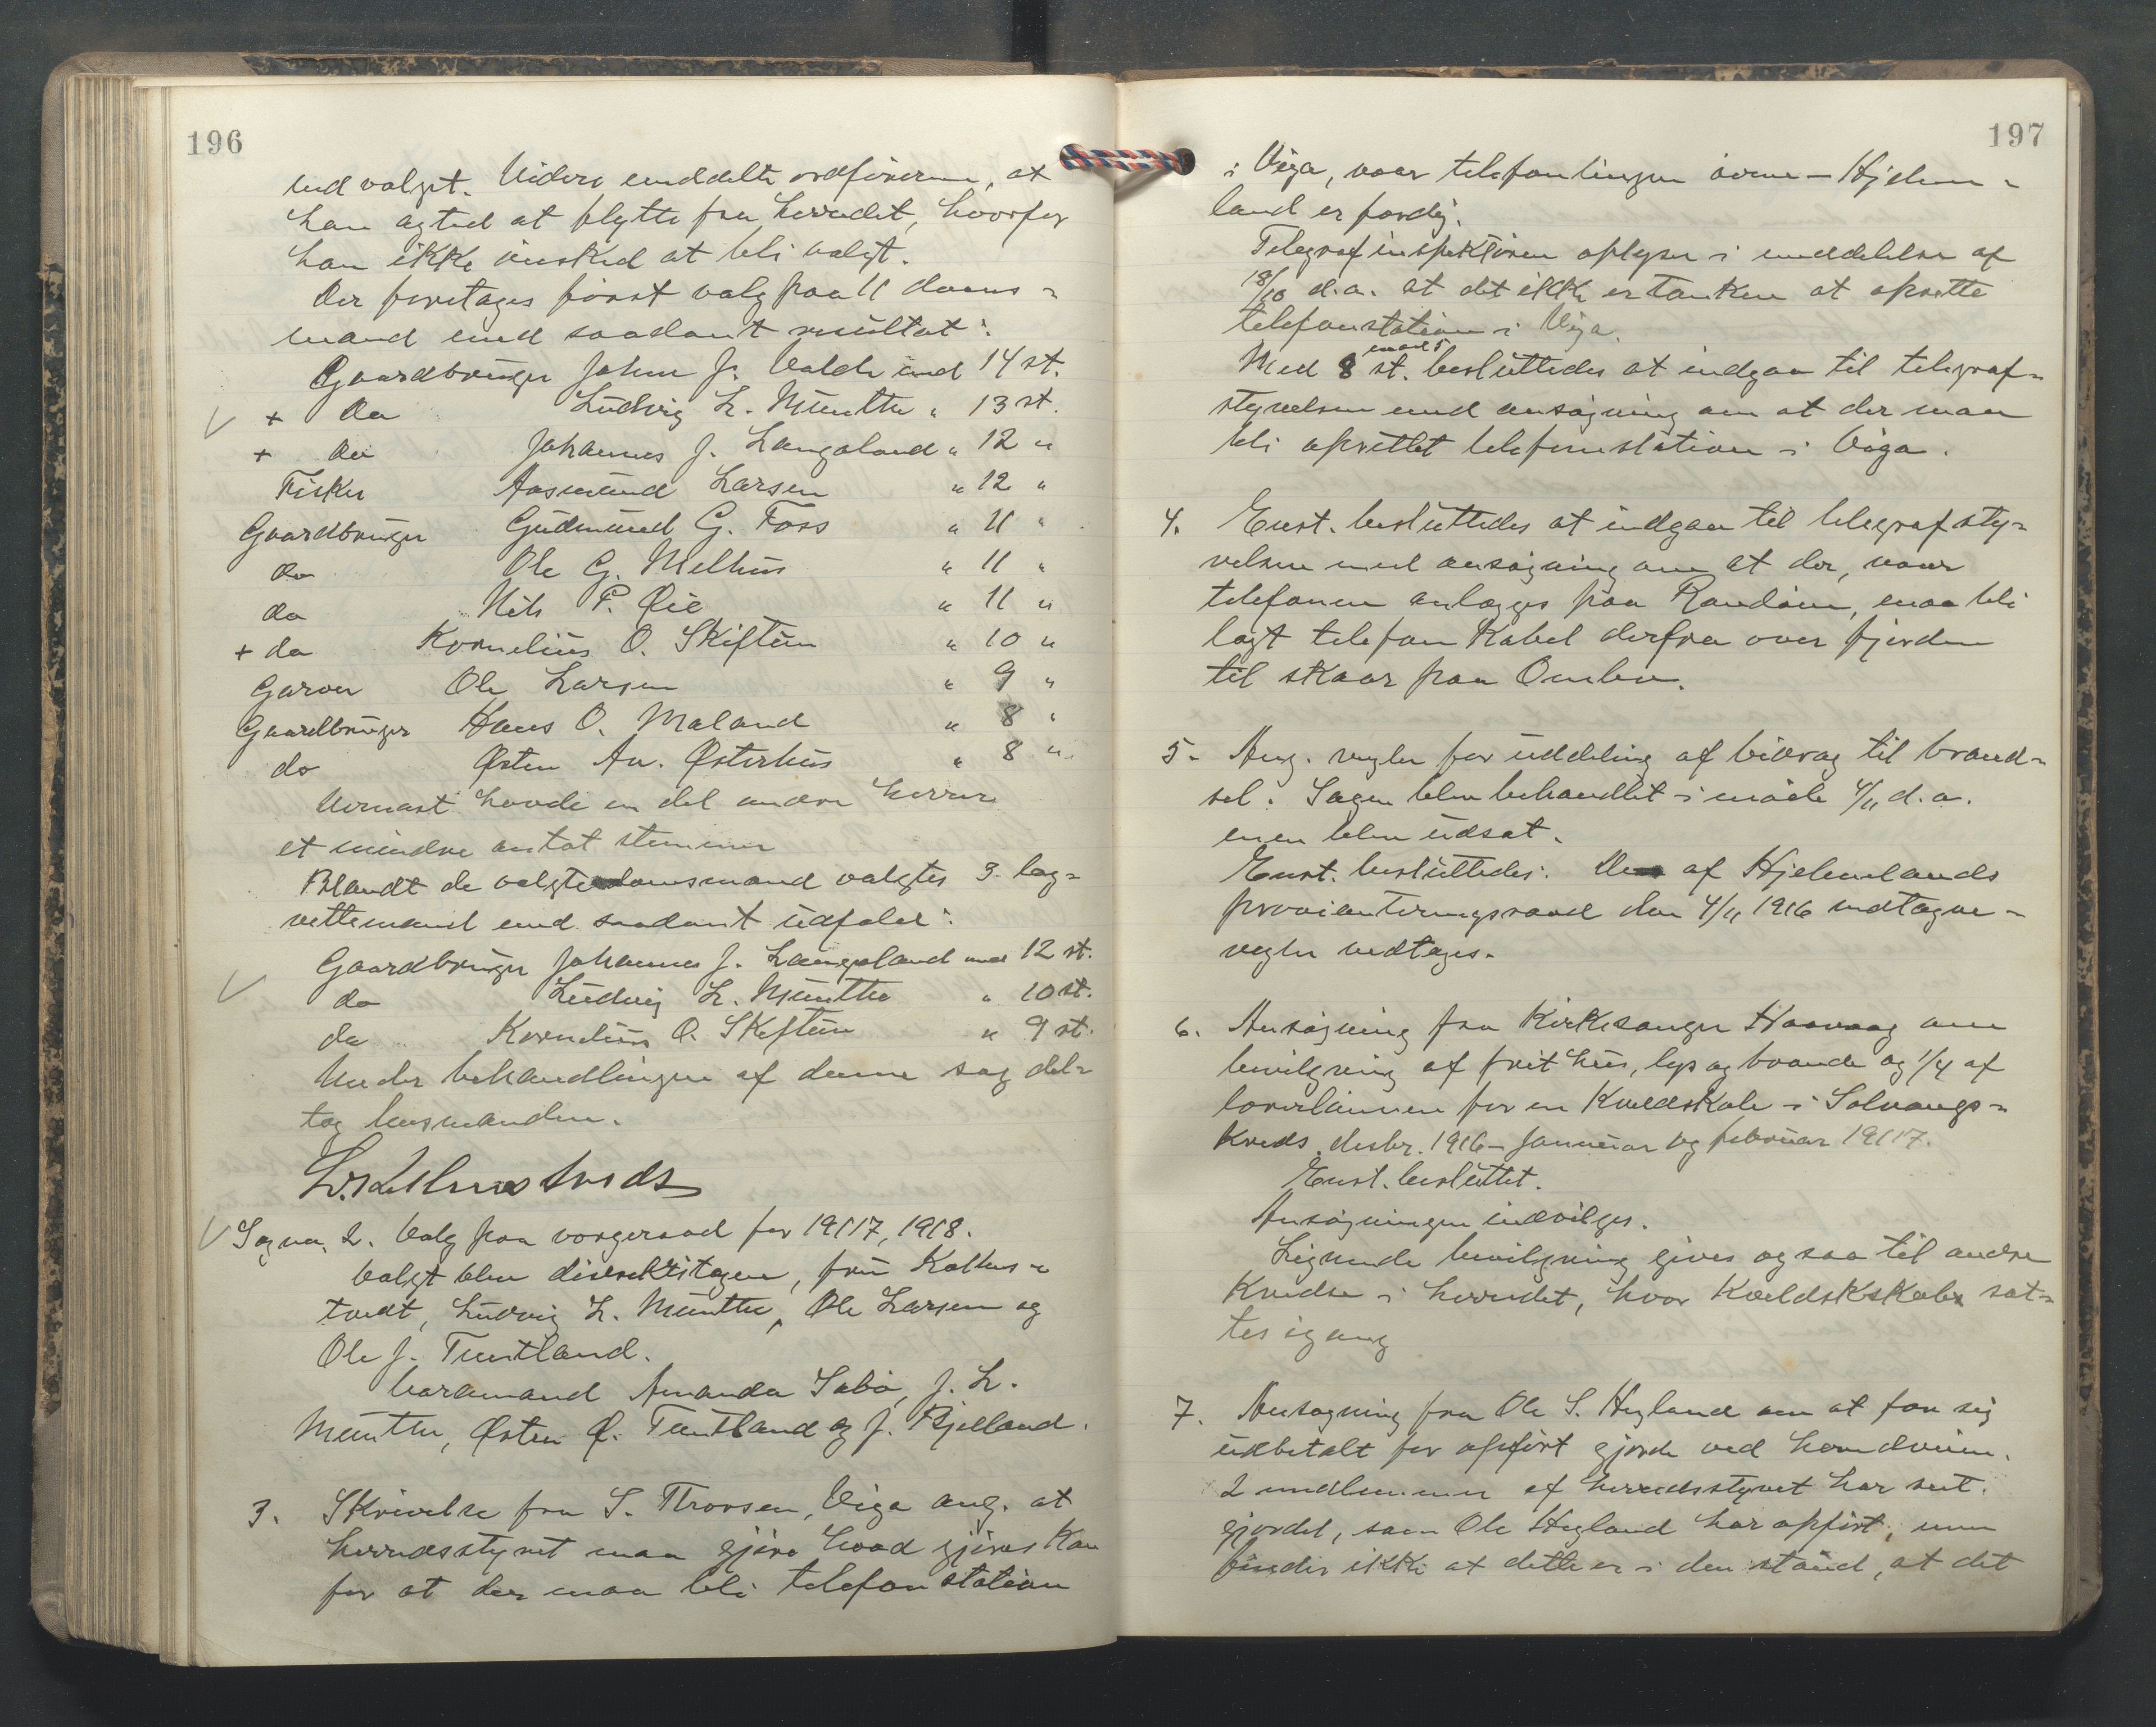 196
ved valget. Videre meddelte ordføreren, at
han agted at flytte fra herredet, hvorfor
han ikke ønsked at bli valgt.
Der foretages først valg paa 11 doms-
mænd med saadant resultat:
Gaardbruger John J. Valde med 14 st.
+ do Ludvig L. Münthe " 13 st.
+ do Johannes J. Langeland " 12 "
Fisker Aasmund Larsen " 12 "
Gaardbruger Gudmund G. Foss " 11 "
do Ole G. Melhus " 11 "
do Nils P. Øie " 11 "
+ do Kornelius O. Skiftun " 10 "
Garver Ole Larsen " 9 "
Gaardbruger Hans O. Mæland " 8 "
do Østen An. Østerhus " 8 "
Dernæst havde en del andre herrer
et mindre antal stemmer
Blandt de valgte domsmænd valgtes 3 lag-
rettemænd med saadant udfald:
Gaardbruger Johannes J. Langeland med 12 st.
do Ludvig L. Münthe " 10 st.
do Kornelius O. Skiftun " 9 st.
Under behandlingen af denne sag del-
tog lensmanden.
Sag no. 2. Valg paa vergeraad for 1917, 1918.
Valgt blev distriktslægen, fru Koltve-
tvedt, Ludvig L. Münthe, Ole Larsen og
Ole J. Tuntland.
Varamænd Amanda Sabø, J. L.
Münthe, Østen Ø. Tuntland og J. Bjelland.
3. Skrivelse fra S. Thorsen, Viga ang. at
herredsstyret maa gjøre hvad gjøres kan
for at der maa bli telefonstation
197
i Viga, naar telefonlinjen Hjelme-
land er færdig.
Telegrafinspektøren oplyser i meddelelse af
18/10 d.a. at det ikke er tanken at oprette
telefonstation i Viga.
Med 8 mod 5 st. besluttedes at indgaa til telegraf-
styrelsen med ansøgning om at der maa
bli oprettet telefonstation i Viga.
4. Enst. besluttedes at indgaa til telegrafsty-
relsen med ansøgning om at der, naar
telefonen anlægges paa Randøen, maa bli
lagt telefon kabel derfra over fjorden
til Skaar paa Ombo.
5. Ang. regler for uddeling af bidrag til brænd-
sel. Sagen blev behandlet i møde 4/11 d.a.
men blev udsat.
Enst. besluttedes: De af Hjelmelands
provianteringsraad den 4/11 1916 vedtagne
regler vedtages.
6. Ansøgning fra Kirkesanger Haavaag om
bevilgning af frit hus, lys og brænde og 1/4 af
lærerlønnen for en kveldskole i Solvangs-
kreds desbr. 1916 - januar og februar 1917.
Enst. besluttet.
Ansøgningen indvilges.
Lignende bevilgning gives ogsaa til andre
kredse i herredet, hvor kveldskskoler sæt-
tes igang
7. Ansøgning fra Ole S. Hegland om at faa sig
udbetalt for opført gjerde ved
2 medlemmer af herredsstyret har seet
gjerdet, som Ole Hegland har opført, men
finder ikke at dette er i den stand, at det